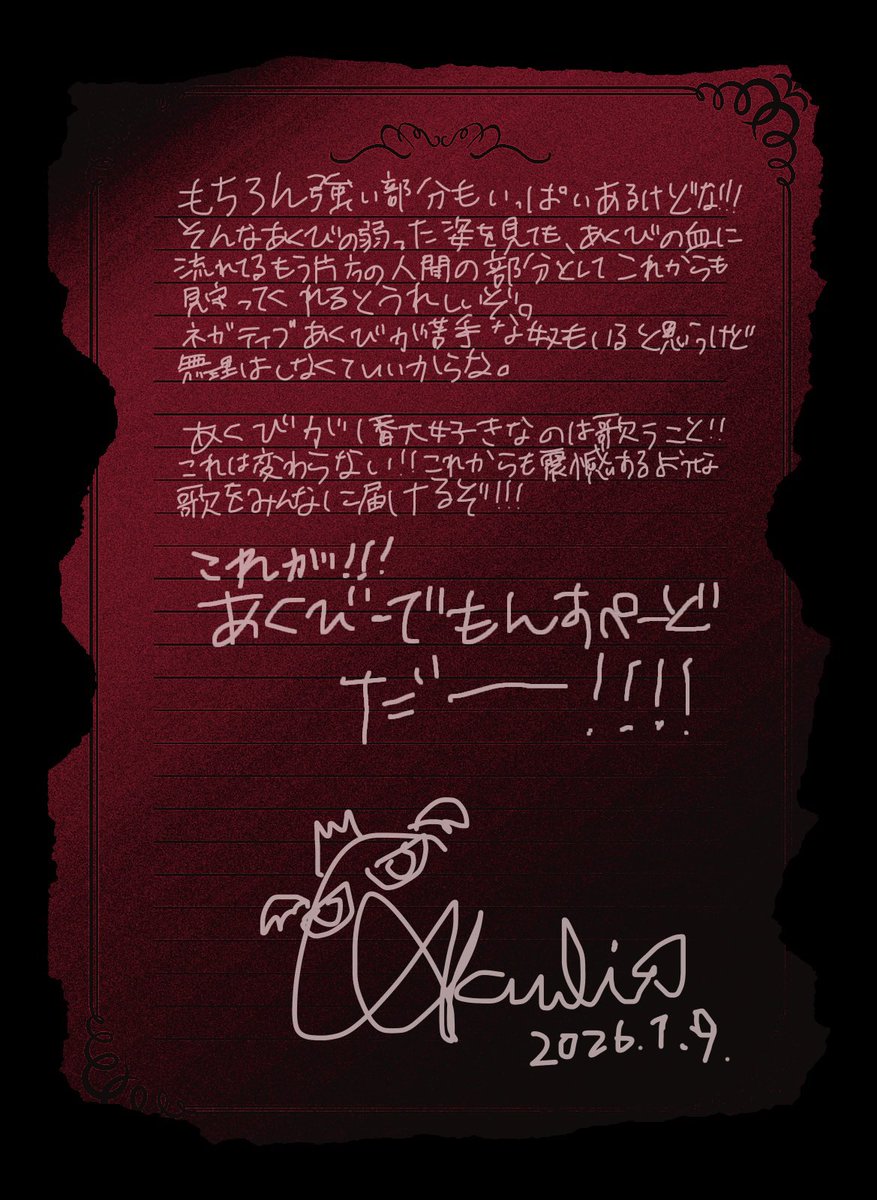 もちろん強い部分もいっぱいあるけどな!!!
そんなあくびの弱った姿を見ても、あくびの血に
流れてるもう片方の人間の部分としてこれからも
見守ってくれるとうれしいぞ。
ネガティブあくびが苦手な奴もいると思うけど
無理はしなくていいからな。
あくびが1番大好きなのは歌うこと!!
これは変わらない!!これからも震憾あるような
歌をみんなに届けるぞ!!!
これが!!!
あくびーでもんすぺーど
だー!!!!
Akubi
2026.1.9.